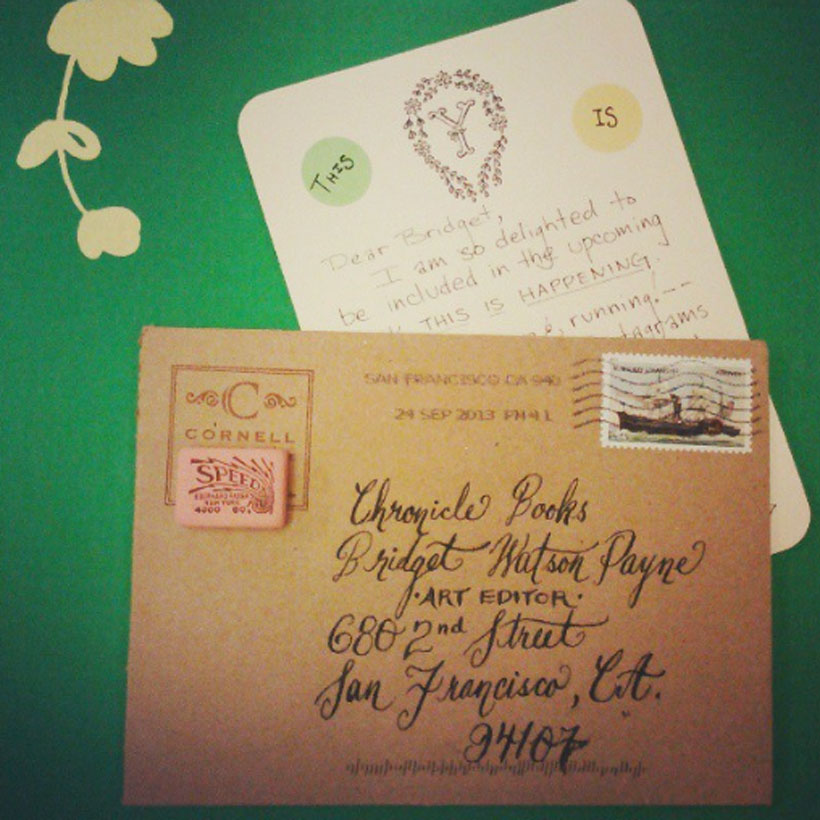 THIS
Y
IS
Dear Bridget,
I am so delighted to
be included in the upcoming
THIS IS HAPPENING.
running!--
SAN FRANCISCO CA 940
24 SEP 2013 PM 4 L
C
CORNELL
SPEED
EBERHARD FABER
NEW YORK
4000
Chronicle Books
Bridget Watson Payne
·ART EDITOR·
680 2nd Street
San Francisco, CA.
94107